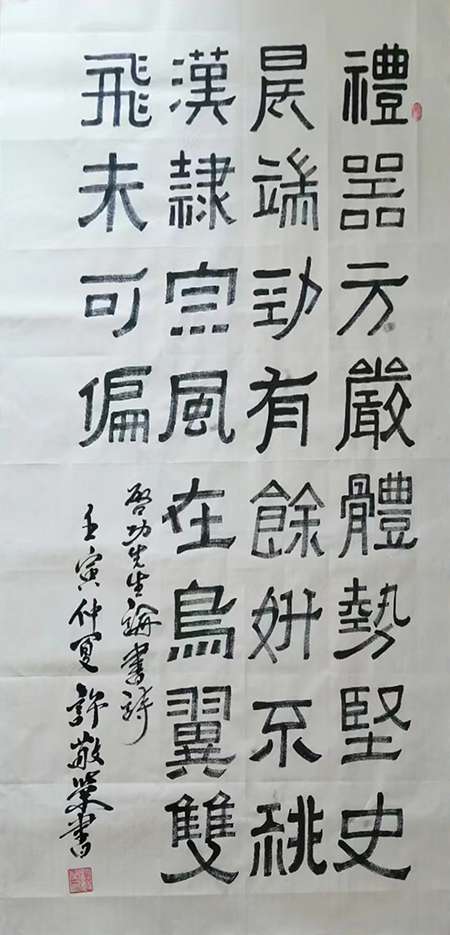 禮器方嚴體勢堅史
晨端勁有餘妍不祧
漢隸宗風在鳥翼雙
飛未可偏
啓功先生論書詩
壬寅仲夏許敬業書